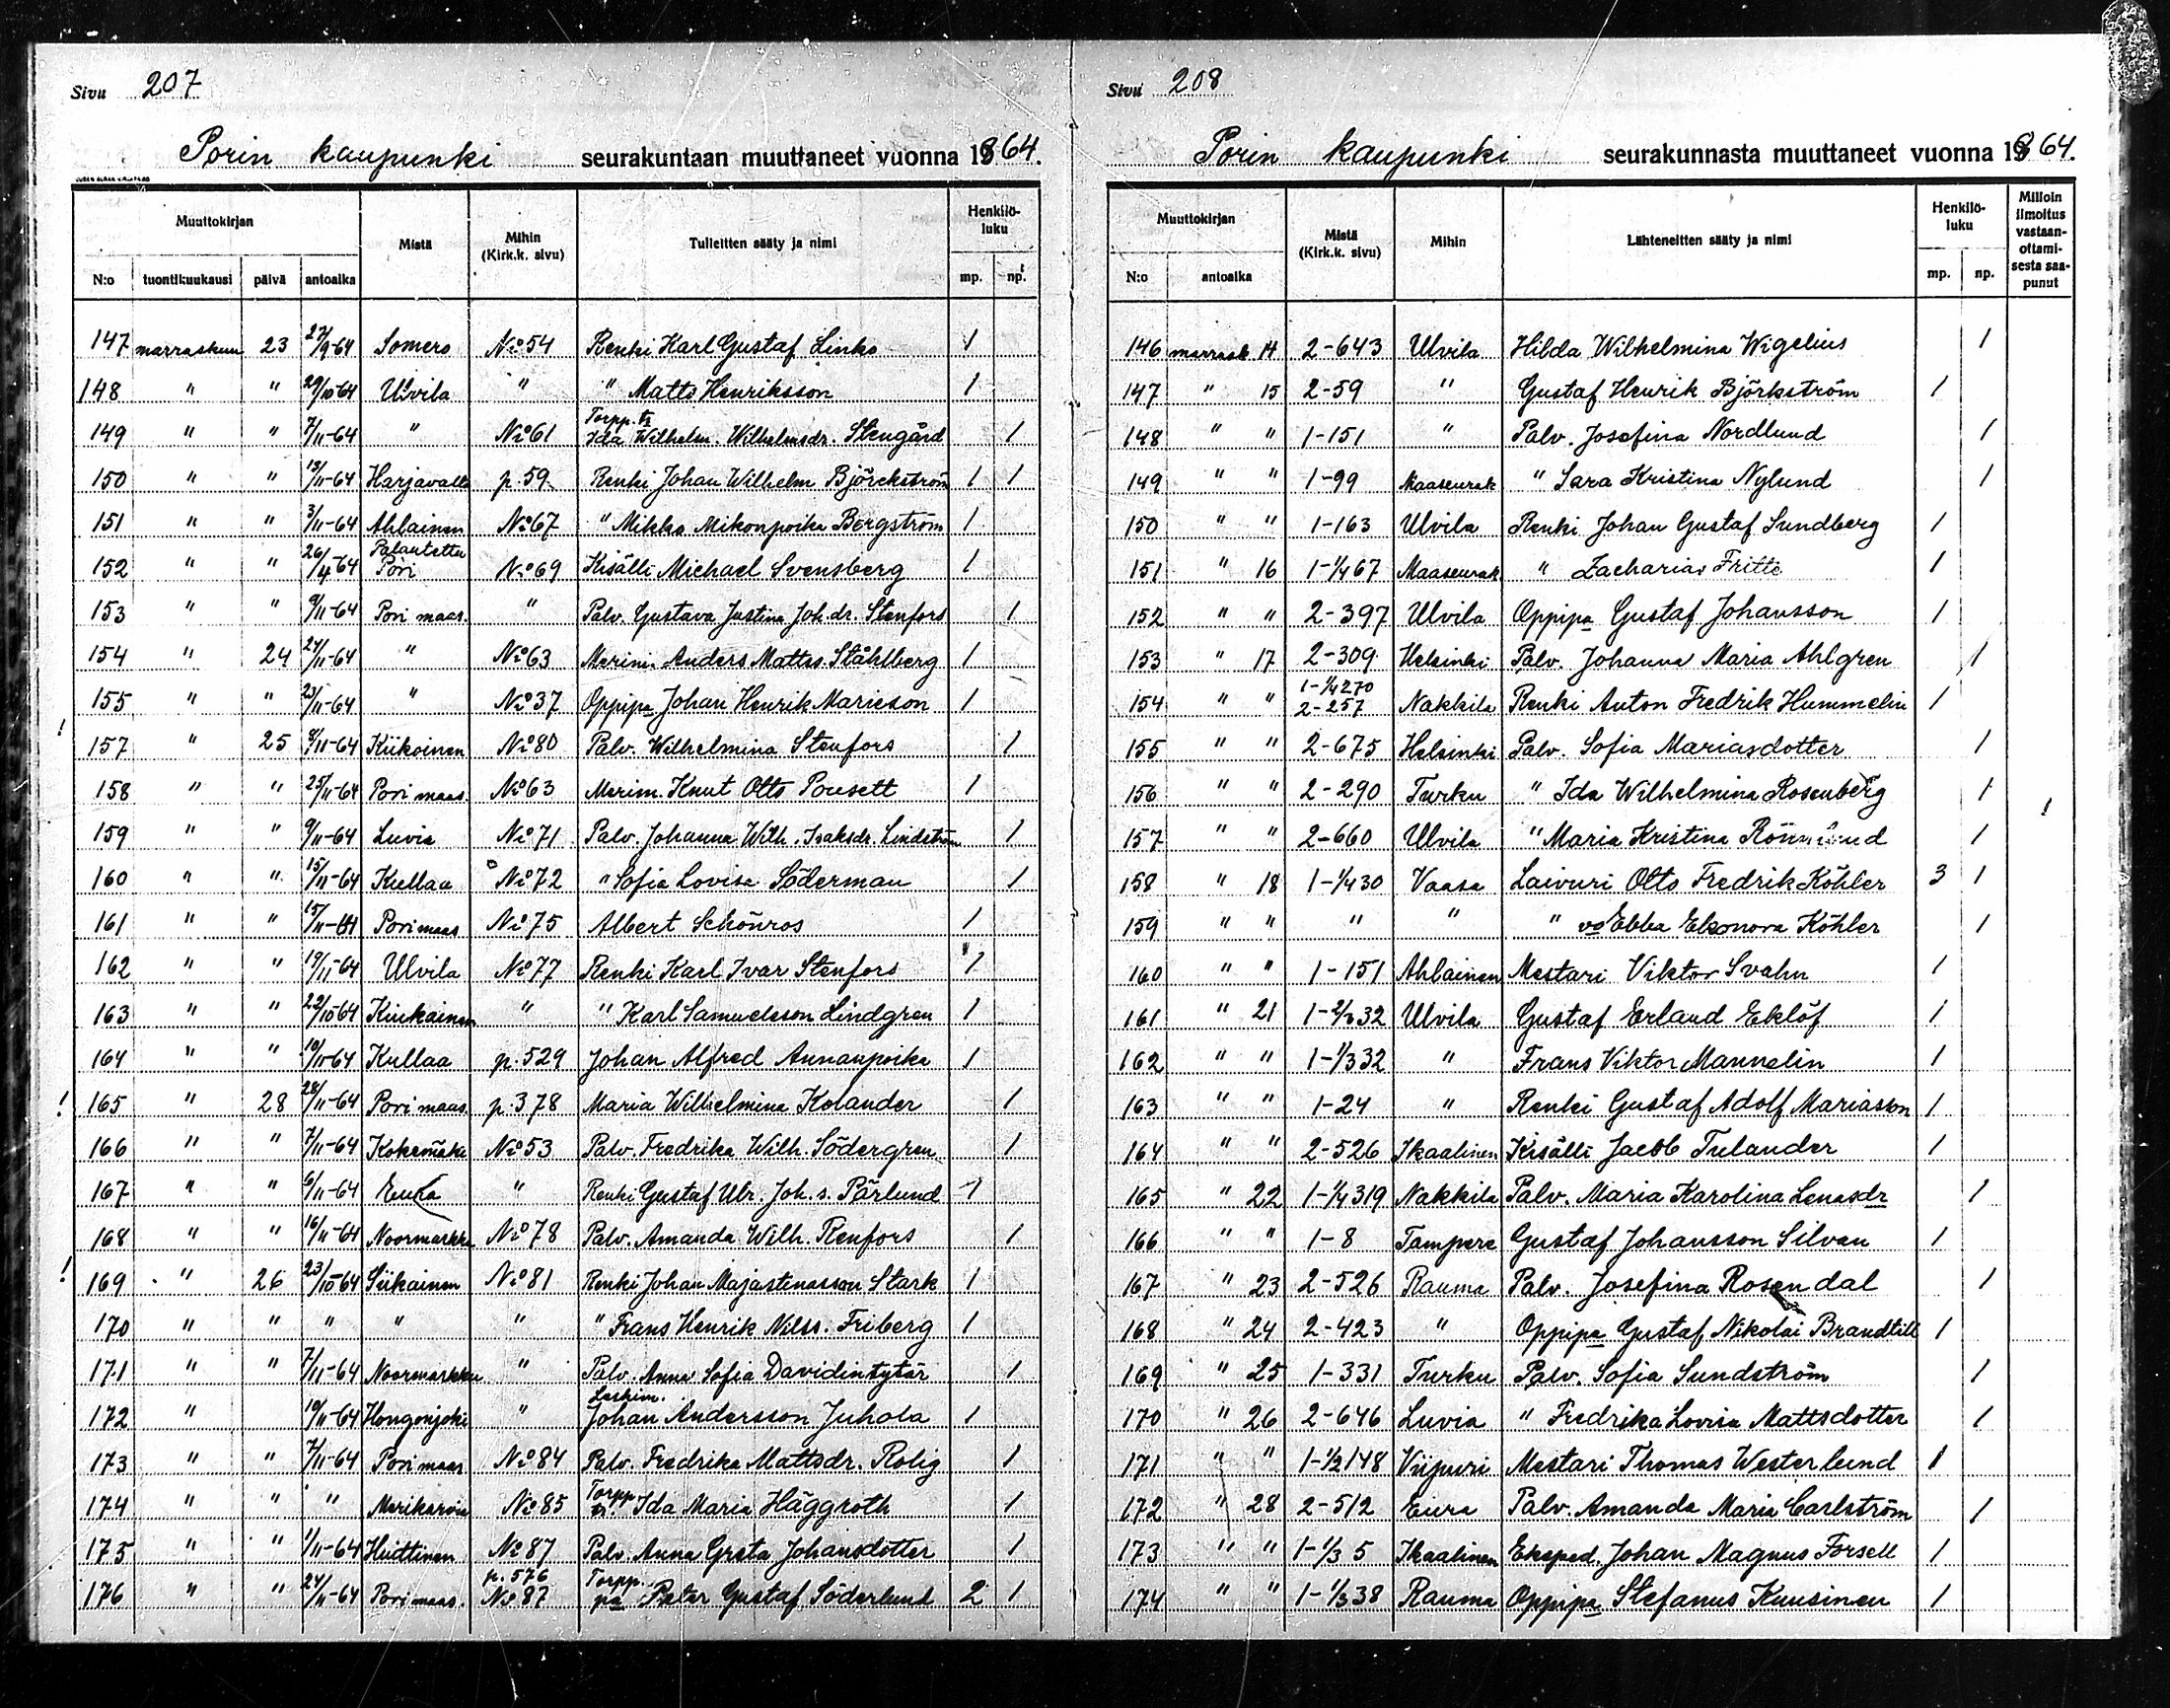 Sivu 207
Porin kaupunki seurakuntaan muuttaneet vuonna 1864.
Muuttokirjan Mistä Mihin (Kirk.k. sivu) Tulleitten sääty ja nimi Henkilö-luku
N:o tuontikuukausi päivä antoaika mp. np.
147 marraskuu 23 27/9-64 Somero No 54 Renki Karl Gustaf Links 1
148 " " 29/10-64 Ulvila " " Matts Henriksson 1
149 " " 7/11-64 " No 61 Torpp. tr Ida Wilhelm. Wilhelmsdr. Stengård 1
150 " " 13/11-64 Harjavalta p. 59 Renki Johan Wilhelm Björckström 1 1
151 " " 3/11-64 Ahlainen No 67 " Mikko Mikonpoika Bergström 1
152 " " 26/4-64 Palautettu Pori No 69 Kisälli Michael Svensberg 1
153 " " 9/11-64 Pori maas. " Palv. Gustava Justina Joh.dr. Stenfors 1
154 " 24 24/11-64 " No 63 Merim. Anders Mattss. Ståhlberg 1
155 " " 23/11-64 " No 37 Oppipa Johan Henrik Marieson 1
! 157 " 25 8/11-64 Kiikoinen No 80 Palv. Wilhelmina Stenfors 1
158 " " 25/11-64 Pori maas. No 63 Merim. Knut Otto Pousett 1
159 " " 9/11-64 Luvia No 71 Palv. Johanna Wilh. Isaksdr. Lindström 1
160 " " 15/11-64 Kullaa No 72 " Sofia Lovisa Söderman 1
161 " " 15/11-64 Pori maas No 75 Albert Schönros 1
162 " " 19/11-64 Ulvila No 77 Renki Karl Ivar Stenfors 1
163 " " 22/10-64 Kiukainen " " Karl Samuelsson Lindgren 1
164 " " 10/11-64 Kullaa p. 529 Johan Alfred Annanpoika 1
! 165 " 28 28/11-64 Pori maas. p. 378 Maria Wilhelmina Kolander 1
166 " " 7/11-64 Kokemäki No 53 Palv. Fredrika Wilh. Södergren 1
167 " " 6/11-64 Eura " Renki Gustaf Ulr. Joh. s. Pärlund 1
168 " " 16/11-64 Noormarkku No 78 Palv. Amanda Wilh. Renfors 1
! 169 " 26 23/10-64 Siikainen No 81 Renki Johan Majastinasson Stark 1
170 " " " " " " Frans Henrik Nilss. Friberg 1
171 " " 7/11-64 Noormarkku " Palv. Anna Sofia Davidintytär 1
172 " 10/11-64 Hongonjoki " Leskim. Johan Andersson Juhola 1
173 " " 7/11-64 Pori maas No 84 Palv. Fredrika Mattsdr. Rolig 1
174 " " " Merikarvia No 85 Torpp. tr. Ida Maria Häggroth 1
175 " " 1/11-64 Huittinen No 87 Palv. Anna Greta Johansdotter 1
176 " " 24/11-64 Pori maas. p. 576 No 87 Torpp. pa Peter Gustaf Söderlund 2 1
Sivu 208
Porin kaupunki seurakunnasta muuttaneet vuonna 1864.
Muuttokirjan Mistä (Kirk.k. sivu) Mihin Lähteneitten sääty ja nimi Henkilö-luku Milloin ilmoitus vastaan-ottami-sesta saa-punut
N:o antoaika mp. np.
146 marrask 14 2-643 Ulvila Hilda Wilhelmina Wigelius 1
147 " 15 2-59 " Gustaf Henrik Björkström 1
148 " " 1-151 " Palv. Josefina Nordlund 1
149 " " 1-99 Maaseurak " Sara Kristina Nylund 1
150 " " 1-163 Ulvila Renki Johan Gustaf Sundberg 1
151 " 16 1-1/4 67 Maaseurak. " Zacharias Fritte 1
152 " " 2-397 Ulvila Oppipa Gustaf Johansson 1
153 " 17 2-309 Helsinki Palv. Johanna Maria Ahlgren 1
154 " " 1-1/4 270 2-257 Nakkila Renki Anton Fredrik Hummelin 1
155 " " 2-675 Helsinki Palv. Sofia Mariasdotter 1
156 " " 2-290 Turku " Ida Wilhelmina Rosenberg 1
157 " " 2-660 Ulvila " Maria Kristina Rönnlund 1 !
158 " 18 1-1/4 30 Vaasa Laivuri Otto Fredrik Köhler 3 1
159 " " " " " vo Ebba Eleonora Köhler 1
160 " " 1-151 Ahlainen Mestari Viktor Svahn 1
161 " 21 1-2/3 32 Ulvila Gustaf Erland Eklöf 1
162 " " 1-1/3 32 " Frans Viktor Mannelin 1
163 " " 1-24 " Renki Gustaf Adolf Mariasson 1
164 " " 2-526 Ikaalinen Kisälli Jacob Tulander 1
165 " 22 1-1/4 319 Nakkila Palv. Maria Karolina Lenasdr 1
166 " " 1-8 Tampere Gustaf Johansson Silvan 1
167 " 23 2-526 Rauma Palv. Josefina Rosendal 1
168 " 24 2-423 " Oppipa Gustaf Nikolai Brandtill 1
169 " 25 1-331 Turku Palv. Sofia Sundström 1
170 " 26 2-646 Luvia " Fredrika Lovisa Mattsdotter 1
171 " " 1-1/2 148 Viipuri Mestari Thomas Westerlund 1
172 " 28 2-512 Eura Palv. Amanda Maria Carlström 1
173 " " 1-1/3 5 Ikaalinen Eksped. Johan Magnus Forsell 1
174 " " 1-1/3 38 Rauma Oppipa Stefanus Kuusinen 1